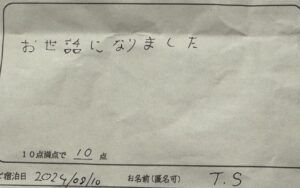 お世話になりました
10点満点で 10 点
ご宿泊日 2024/08/10 お名前(匿名可) T.S